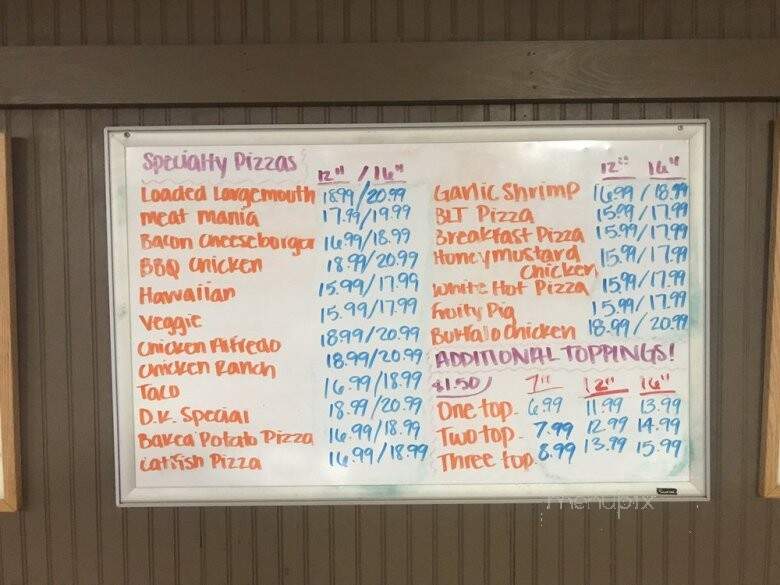 Specialty Pizzas 12" / 16"
Loaded Largemouth 18.99/20.99
meat mania 17.99/19.99
Bacon Cheeseburger 16.99/18.99
BBQ Chicken 18.99/20.99
Hawaiian 15.99/17.99
Veggie 15.99/17.99
Chicken Alfredo 18.99/20.99
Chicken Ranch 18.99/20.99
Taco 16.99/18.99
D.K. Special 18.99/20.99
Baked Potato Pizza 16.99/18.99
Catfish Pizza 16.99/18.99
12" 16"
Garlic Shrimp 16.99/18.99
BLT Pizza 15.99/17.99
Breakfast Pizza 15.99/17.99
Honeymustard
Chicken 15.99/17.99
White Hot Pizza 15.99/17.99
Fruity Pig 15.99/17.99
Buffalo Chicken 18.99/20.99
ADDITIONAL TOPPINGS!
$1.50 7" 12" 16"
One top. 6.99 11.99 13.99
Two top. 7.99 12.99 14.99
Three top. 8.99 13.99 15.99
menupix